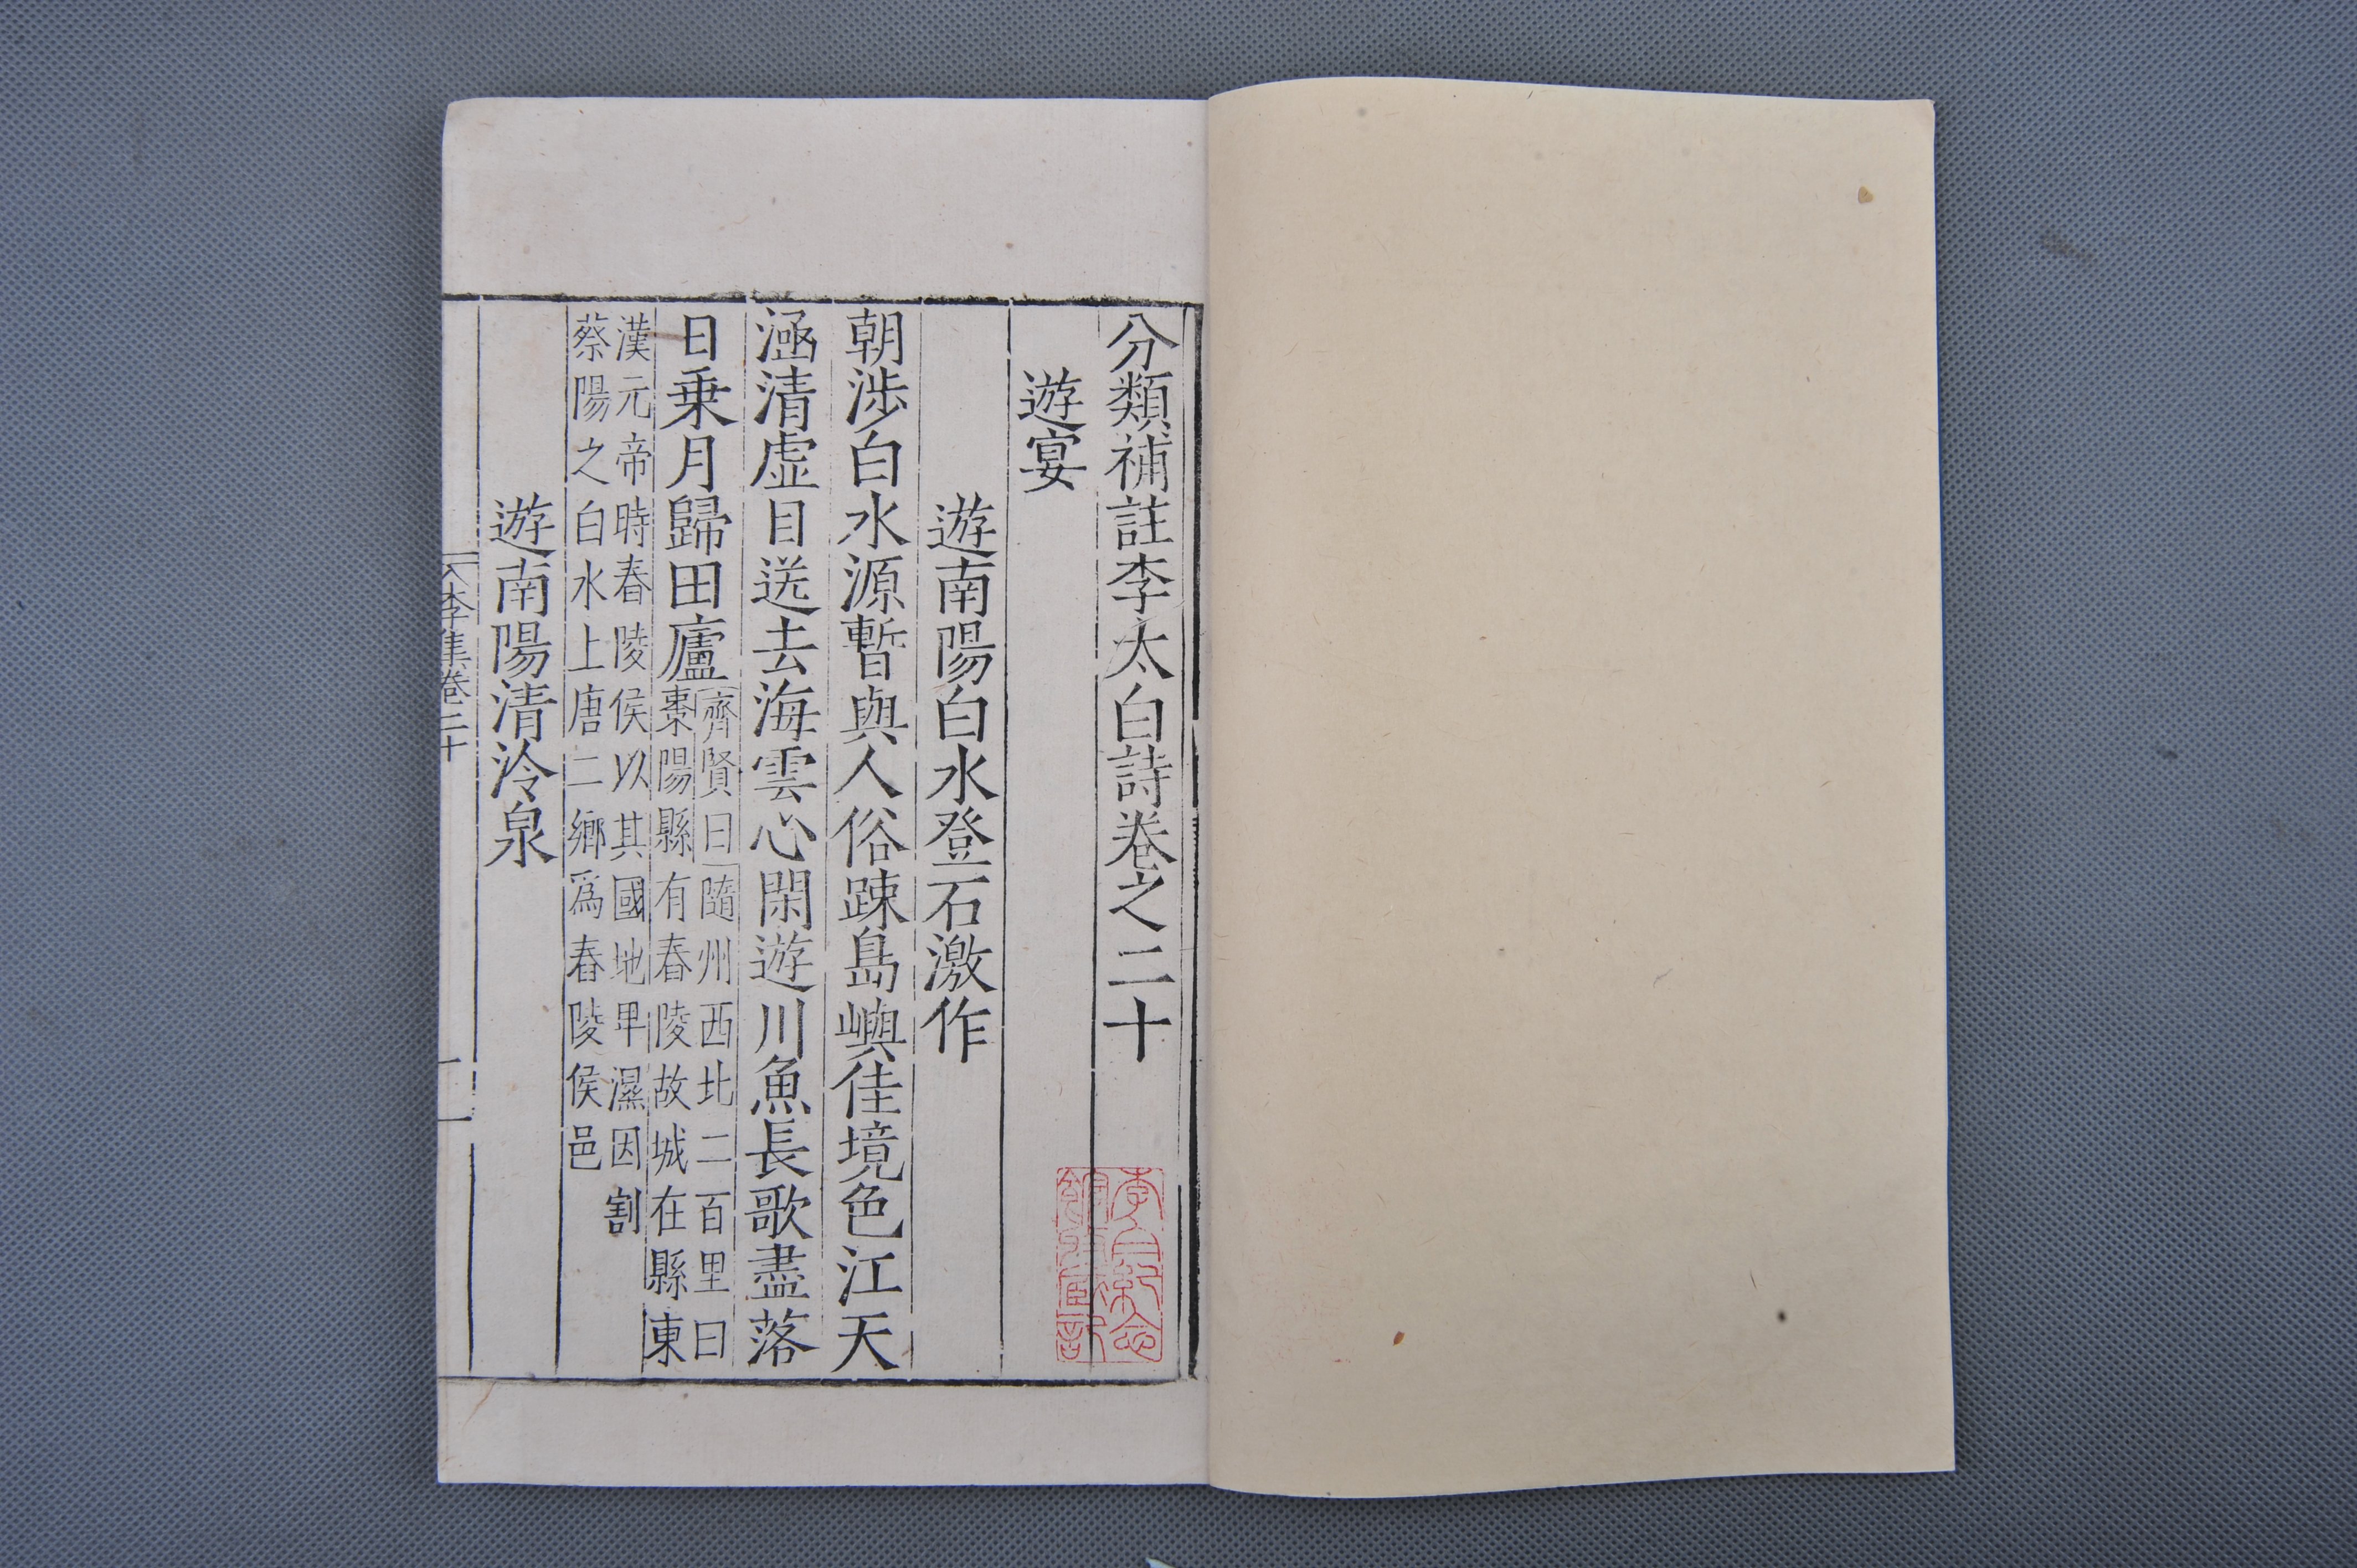 分類補註李太白詩卷之二十
遊宴
遊南陽白水登石激作
朝涉白水源暫與人俗踈島嶼佳境色江天
涵清虛目送去海雲心閑遊川魚長歌盡落
日乗月歸田廬
齊賢曰隨州西北二百里曰
棗陽縣有春陵故城在縣東
漢元帝時春陵侯以其國地卑濕因割
蔡陽之白水上唐二鄉爲舂陵侯邑
遊南陽清泠泉
李集卷二十
一
李白紀念